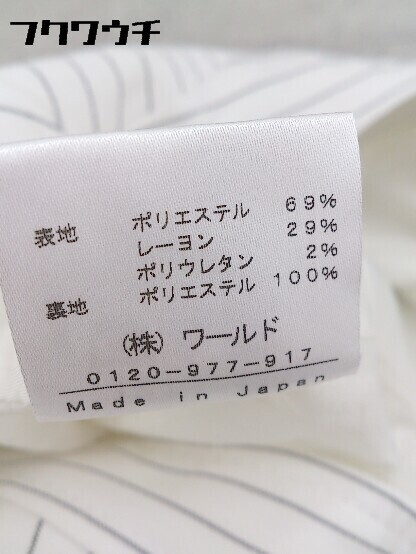 フクワウチ
表地 ポリエステル 69%
レーヨン 29%
ポリウレタン 2%
裏地 ポリエステル 100%
(株) ワールド
0120-977-917
Made in Japan